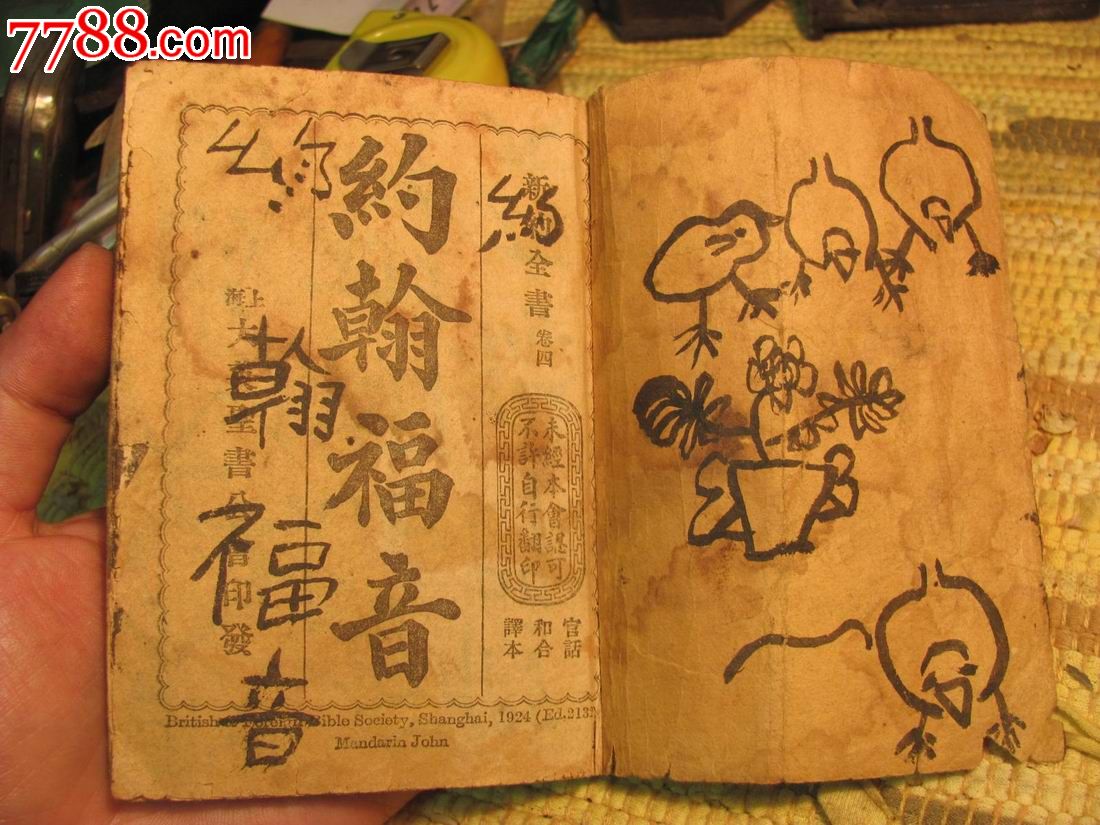 7788.com
新約全書 卷四
未經本會認可
不許自行翻印
官話
和合
譯本
約翰福音
上海大英聖書公會印發
約
翰
福
音
British & Foreign Bible Society, Shanghai, 1924 (Ed.2132
Mandarin John